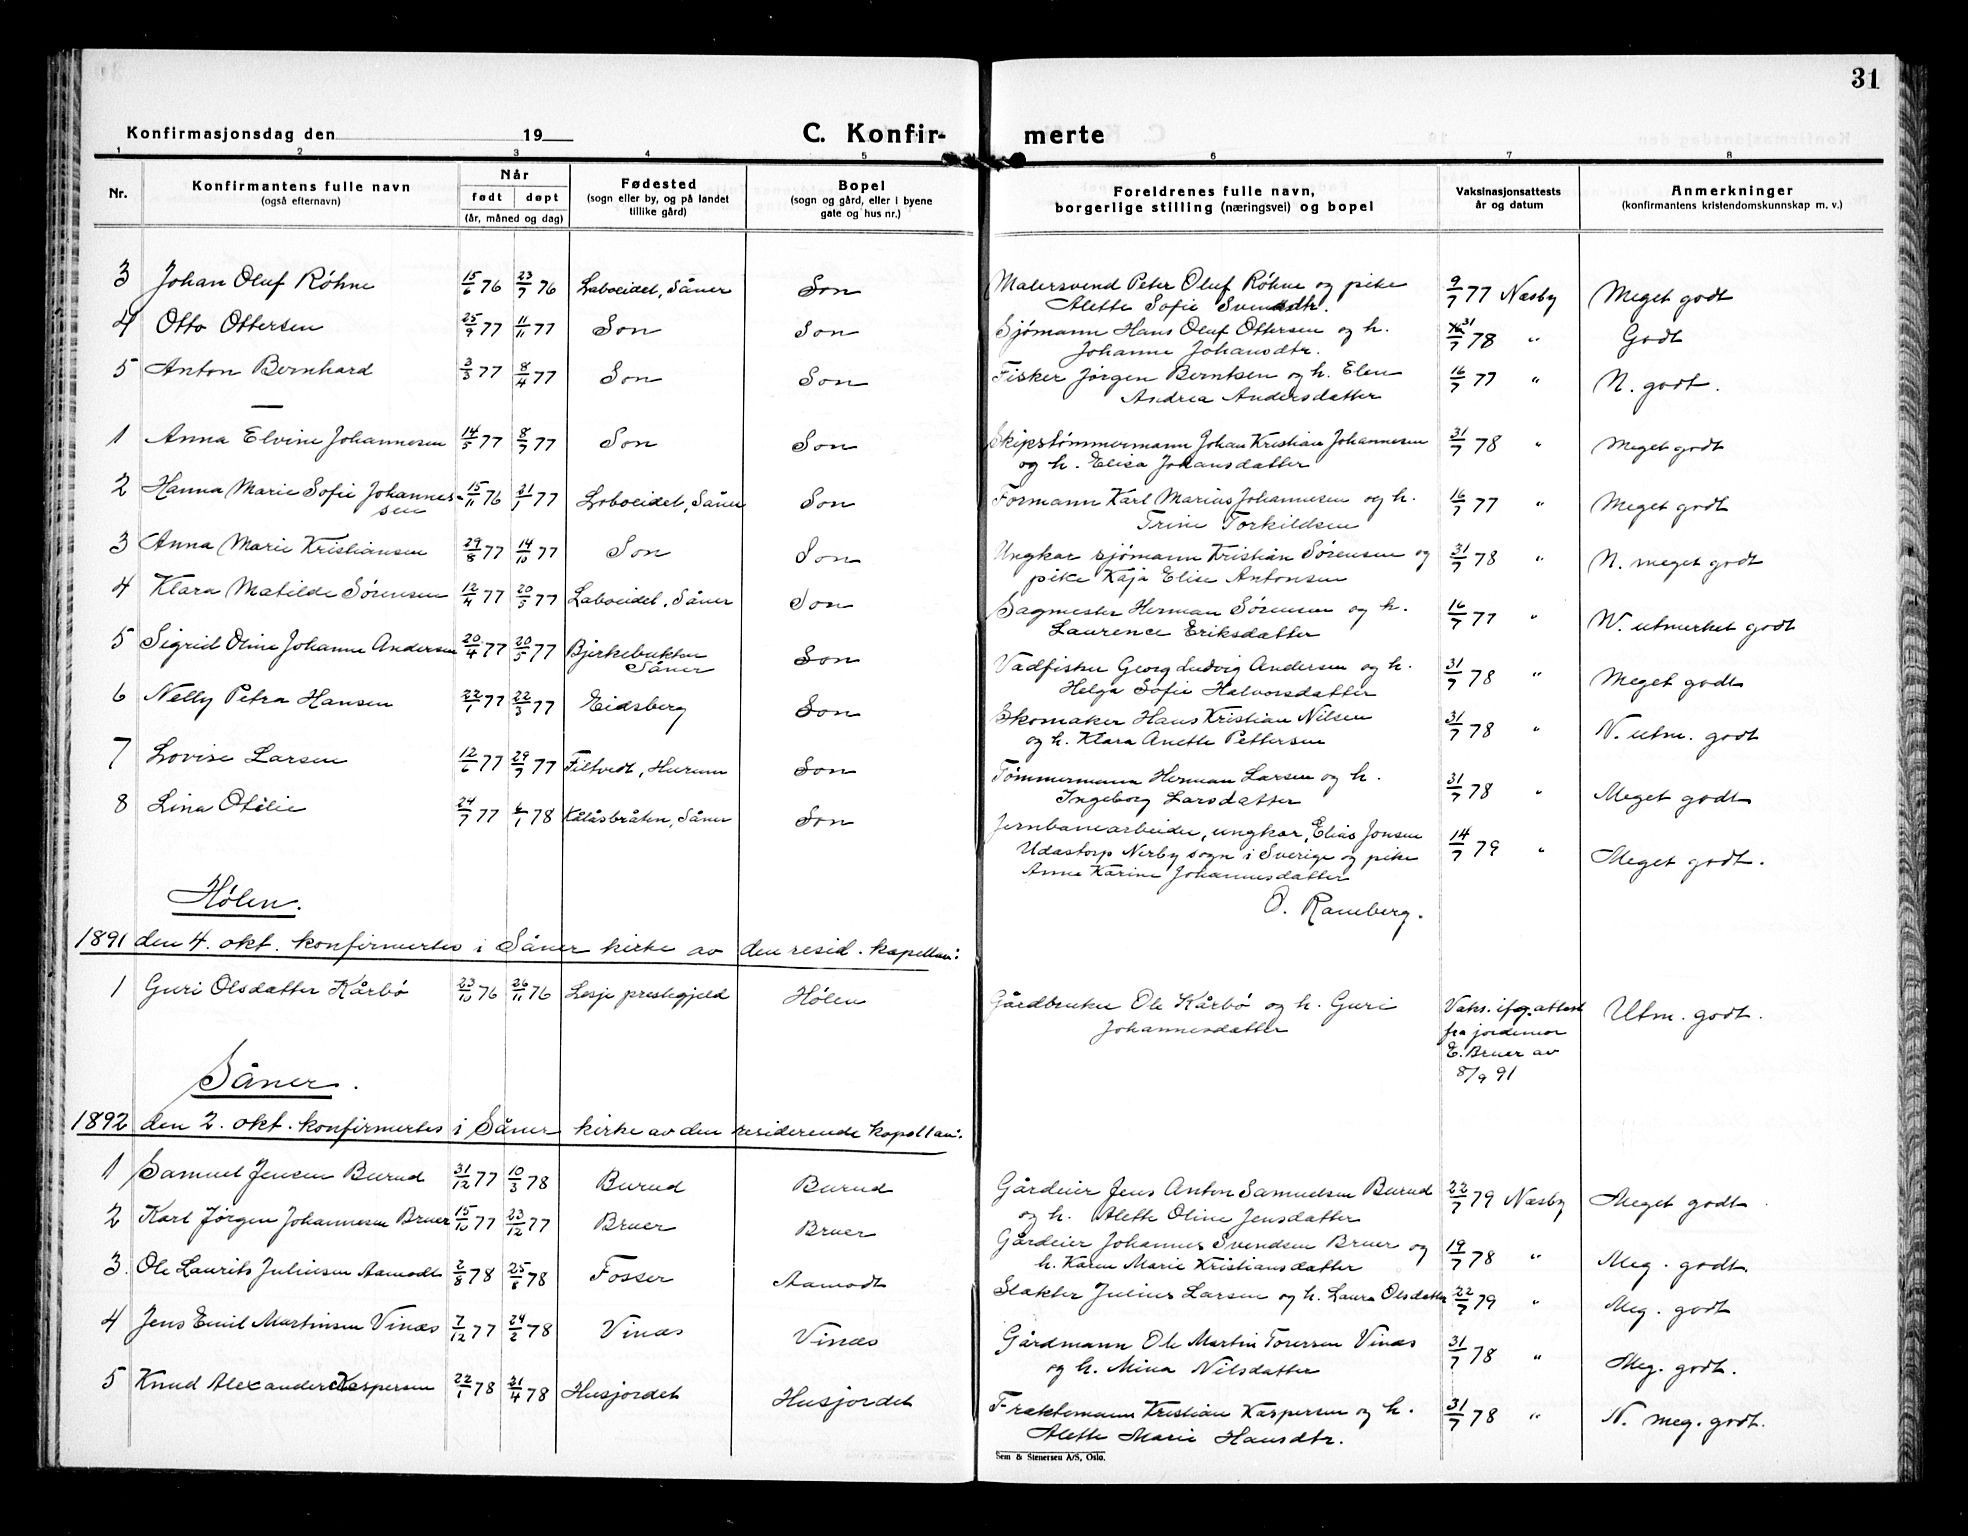 31
Konfirmasjonsdag den 19
C. Konfir-
merte
1 2 3 4 5 6 7 8
Nr.
Konfirmantens fulle navn
(også efternavn)
Når
født døpt
(år, måned og dag)
Fødested
(sogn eller by, og på landet
tillike gård)
Bopel
(sogn og gård, eller i byene
gate og hus nr.)
Foreldrenes fulle navn,
borgerlige stilling (næringsvei) og bopel
Vaksinasjonsattests
år og datum
Anmerkninger
(konfirmantens kristendomskunnskap m. v.)
3 Johan Oluf Röhne 15/6 76 23/7 76 Laboeidet, Såner Son Malersvend Peter Oluf Röhne og pike 9/7 77 Næsby Meget godt
Alette Sofie Svendsdtr.
4 Otto Ottersen 25/9 77 11/11 77 Son Son Sjömann Hans Oluf Ottersen og h. 31/7 78 " Godt
Johanne Johansdtr.
5 Anton Bernhard 3/3 77 8/4 77 Son Son Fisker Jörgen Berntsen og h. Elen 16/7 77 " N. godt.
Andrea Andersdatter
1 Anna Elvine Johannesen 14/5 77 8/7 77 Son Son Skipstömmermann Johan Kristian Johannesen 31/7 78 " Meget godt
og h. Elisa Johansdatter
2 Hanna Marie Sofie Johannes- 15/11 76 21/1 77 Laboeidet, Såner Son Formann Karl Marius Johannesen og h. 16/7 77 " Meget godt
sen Trine Torkildsen
3 Anna Marie Kristiansen 29/8 77 14/10 77 Son Son Ungkar sjömann Kristian Sörensen og 31/7 78 " N. meget godt
pike Kaja Elise Antonsen
4 Klara Matilde Sörensen 12/4 77 20/5 77 Laboeidet, Såner Son Sagmester Herman Sörensen og h. 16/7 77 " N. utmerket godt
Laurence Eriksdatter
5 Sigrid Oline Johanne Andersen 20/4 77 20/5 77 Bjerkebukten Son Vadfisker Georg Ludvig Andersen og h. 31/7 78 " Meget godt
Såner Helga Sofie Halvorsdatter
6 Nelly Petra Hansen 22/1 77 22/3 77 Eidsberg Son Skomaker Hans Kristian Nilsen 31/7 78 " N. utm. godt
og h. Klara Anette Pettersen
7 Lovise Larsen 12/6 77 29/7 77 Filtvedt, Hurum Son Tömmermann Herman Larsen og h. 31/7 78 " Meget godt
Ingeborg Larsdatter
8 Lina Otilie 24/7 77 6/1 78 Kålåsbråten, Såner Son Jernbanearbeider, ungkar, Elias Jonsen 14/7 79 " Meget godt.
Udastorp Nerby sogn i Sverige og pike
Anne Karine Johannesdatter
O. Ramberg.
Hölen.
1891 den 4. okt. konfirmertes i Såner kirke av den resid. kapellan:
1 Guri Olsdatter Kårbö 23/10 76 26/11 76 Lesje prestegjeld Hölen Gårdbruker Ole Kårbö og h. Guri Vaks. ifg. attest Utm. godt.
Johannesdatter fra jordemor
E. Bruer av
8/9 91
Såner.
1892 den 2. okt. konfirmertes i Såner kirke av den residerende kapellan:
1 Samuel Jensen Burud 31/12 77 10/3 78 Burud Burud Gårdeier Jens Anton Samuelsen Burud 22/7 79 Næsby Meget godt.
og h. Alette Oline Jensdatter
2 Karl Jörgen Johannesen Bruer 15/10 77 23/12 77 Bruer Bruer Gårdeier Johannes Svendsen Bruer og 19/7 78 " Meg. godt.
h. Karen Marie Kristiansdatter
3. Ole Laurits Juliusen Aamodt 2/8 78 25/8 78 Fosser Aamodt Slakter Julius Larsen og h. Laura Olsdatter 22/7 79 " Meg. godt
4 Jens Emil Martinsen Vinæs 7/12 77 24/2 78 Vinæs Vinæs Gårdmann Ole Martin Vinæs 31/7 78 " Meg. godt.
og h. Mina Nilsdatter
5 Knud Alexander Kaspersen 22/1 78 21/4 78 Husjordet Husjordet Fraktemann Kristian Kaspersen og h. 31/7 78 " N. meg. godt.
Alette Marie Hansdtr.
Sem & Stenersen A/S, Oslo.